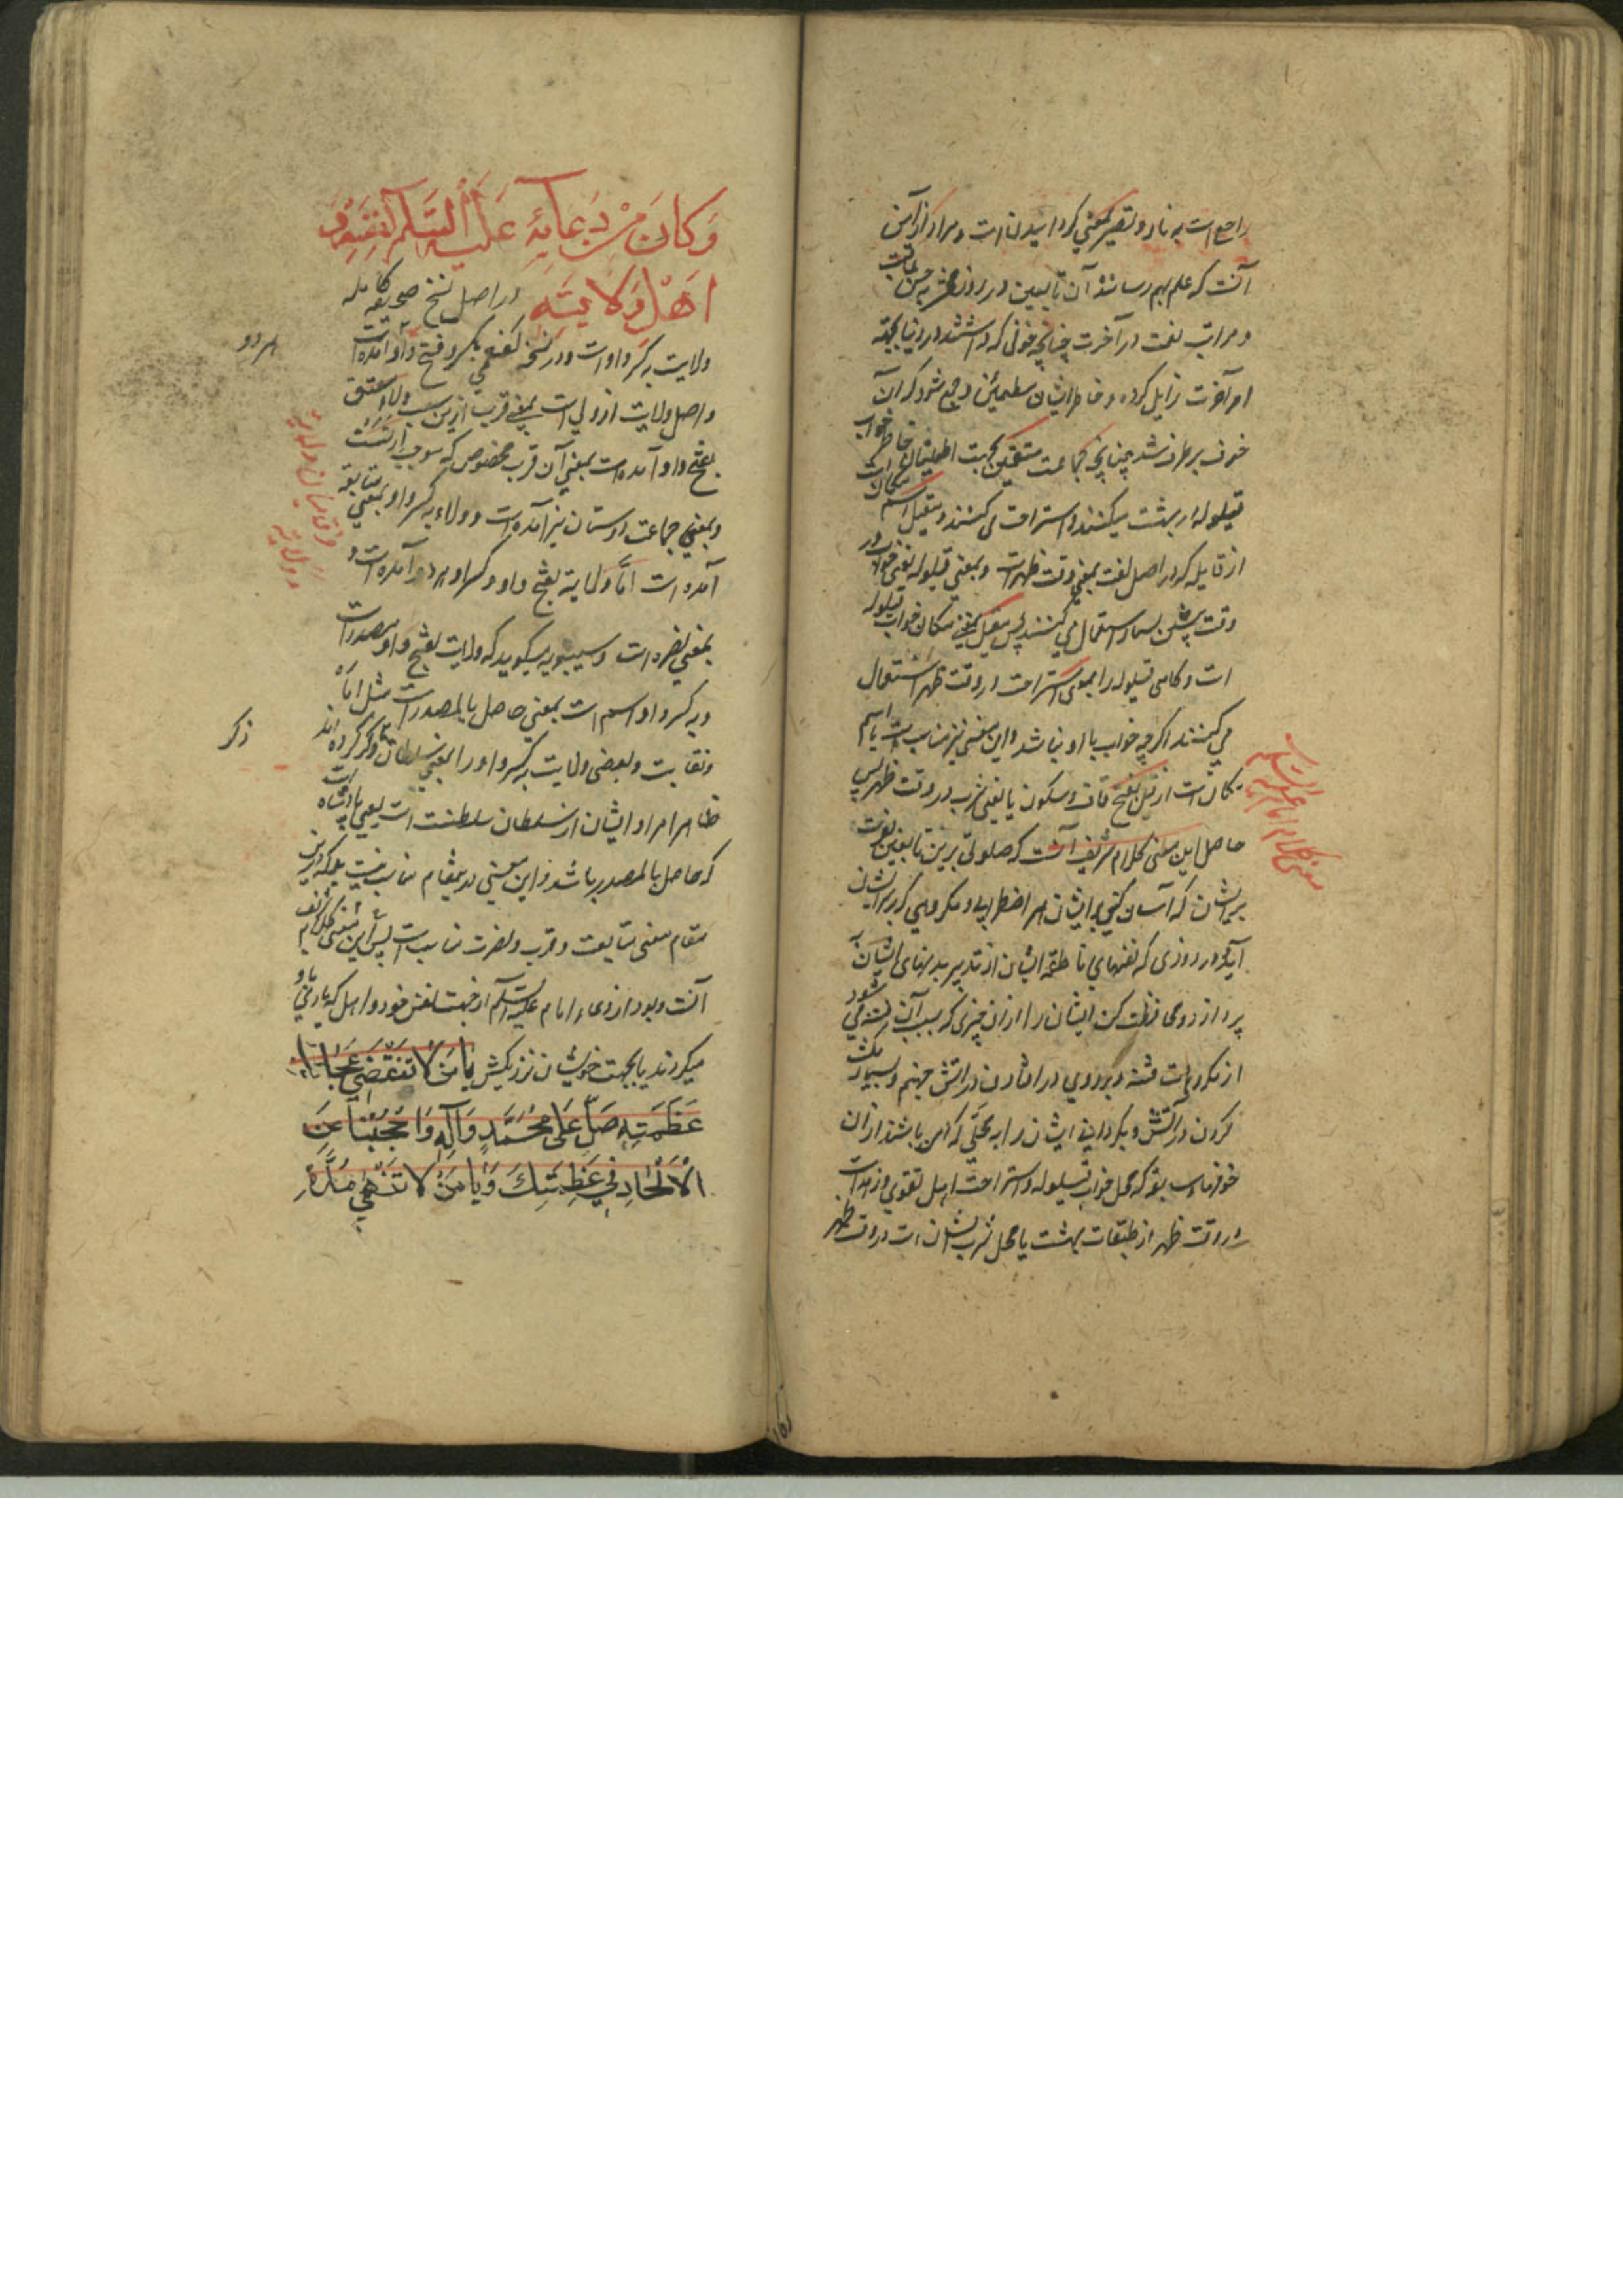 راجع است به نار و تصیر بمعنی گردانیدن است و مراد از امن
آنست که علم بهم رسانند آن تابعین در روز محشر به حسن عاقبت
و مراتب نعمت در آخرت چنانچه خوفی که داشتند در دنیا بجهة
امر آخرت زایل کرده و خاطر ایشان مطمئن و جمع شود که آن
خوف برطرف شد چنانچه جماعت متقین بجهت اطمینان خاطر خواب
قیلوله در بهشت میکنند و استراحت می کنند و مقیل اسم مکان است
از قایله که در اصل لغت بمعنی وقت ظهر است و بمعنی قیلوله یعنی خواب در
وقت پیشین بسیار استعمال می کنند پس مقیل یعنی مکان خواب قیلوله
است و گاهی قیلوله را بمعنی استراحت در وقت ظهر استعمال
می کنند اگر چه خواب با او نباشد و این معنی نیز مناسب است یا اسم
مکان است از قیل بفتح قاف و سکون یا یعنی شرب در وقت ظهر پس
حاصل این معنی کلام شریف آنست که صلوتی برین تابعین بفرست
بریشان که آسان کنی بر ایشان هر اضطراب و مکروهی که بر ایشان
آید در روزی که نفسهای ناطقه ایشان از تدبیر بدنهای ایشان
پردازد و محافظت کن ایشان را از آن چیزی که بسبب آن فتنه می شود
از مکروهات فتنه و بر روی در افتادن در آتش جهنم و بسیار مکث
کردن در آتش و بگردانی ایشان را به محلی که امن باشند از آن
خوف مناسب بود که محل خواب قیلوله و استراحت اهل تقوی و زهد است
در وقت ظهر از طبقات بهشت یا محل شرب ایشان است در وقت ظهر
معنی کلام امام علیه السلام
وَكَانَ مِنْ دُعَائِهِ عَلَيْهِ السَّلَم لِنَفْسِهِ وَ
اَهْلِ وَلَايَتِه در اصل نسخ صحیفه کامله
ولایت به کسر واو است و در نسخه کفعمی بکسر و فتح واو آمده است
هر دو
و اصل ولایت از ولی است بمعنی قرب ازین سبب ولاء عتق
بفتح واو آمده است بمعنی آن قرب مخصوص که موجب ارث است
و بمعنی جماعت دوستان نیز آمده است و ولاء به کسر واو بمعنی متابعة
آمده است اما ولایة بفتح واو و کسر واو هر دو آمده است و
فرق میان ولایة و ولایة
بمعنی نصرة است و سیبویه میگوید که ولایت بفتح واو مصدر است
و به کسر واو اسم است بمعنی حاصل بالمصدر است مثل امارة
و نقابت و بعضی ولایت به کسر واو را بمعنی سلطان ذکر کرده اند
ذکر
ظاهرا مراد ایشان از سلطان سلطنت است یعنی پادشاه است
که حاصل بالمصدر باشد و این معنی در ینمقام مناسب نیست بلکه درین
مقام معنی متابعت و قرب و نصرت مناسب است پس این معنی کلام شریف
آنست و بود از دعاء امام علیه السلام از جهت نفس خود و اهل که یاری او
میکردند یا بجهت خویشان نزدیکش يَا مَنْ لَا تَنْقَضِي عَجَائِبُ
عَظَمَتِهِ صَلِّ عَلَى مُحَمَّدٍ وَآلِهِ وَاحْجُبْنَا عَنِ
الْاِلْحَادِ فِي عَظَمَتِكَ وَيَا مَنْ لَا تَنْتَهِي مُدَّةُ